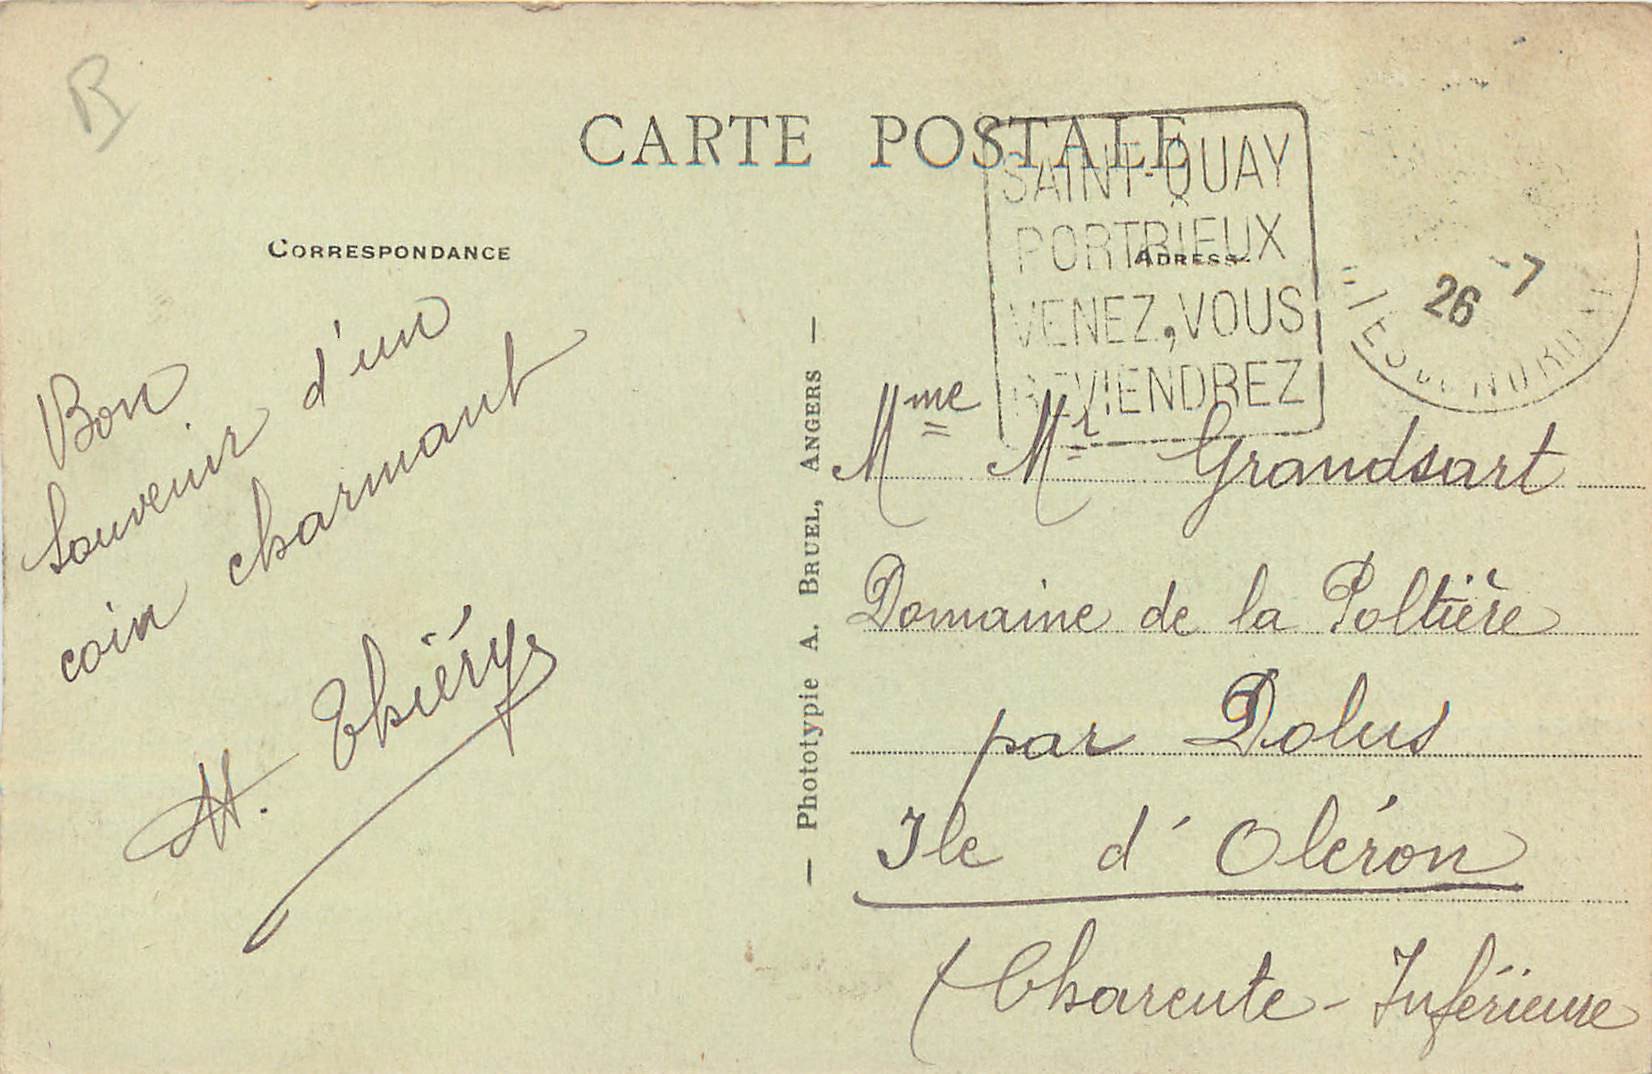 B
CARTE POSTALE
SAINT-QUAY
PORTRIEUX
VENEZ, VOUS
REVIENDREZ
26 -7
CORRESPONDANCE
ADRESSE
Bon
souvenir d'un
coin charmant
H. Thiéry
— Phototypie A. BRUEL, ANGERS —
Mme Mr Grandsart
Domaine de la Poltière
par Dolus
Ile d'Oléron
(Charente-Inférieure